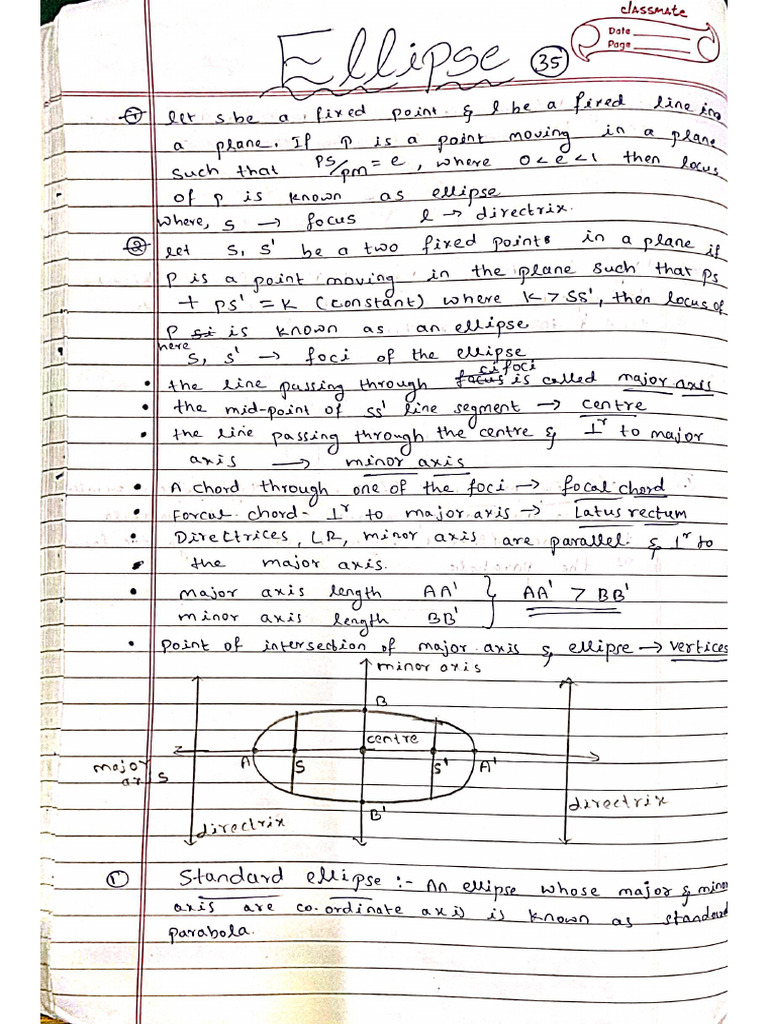 classmate
Date
Page
Ellipse 35
① let s be a fixed point & l be a fixed line in
a plane. If P is a point moving in a plane
such that PS/PM = e, where 0<e<1 then locus
of P is known as ellipse
where, S → focus l → directrix.
② let S, S' be a two fixed points in a plane if
P is a point moving in the plane such that PS
+ PS' = K (constant) where K > SS', then locus of
P is known as an ellipse
here
S, S' → foci of the ellipse
• the line passing through foci is called major axis
• the mid-point of SS' line segment → centre
• the line passing through the centre & ⊥r to major
axis → minor axis
• A chord through one of the foci → focal chord.
• Forcal chord - ⊥r to major axis → Latus rectum
• Directrices, LR, minor axis are parallel & ⊥r to
• the major axis.
• major axis length AA' } AA' > BB'
minor axis length BB'
• point of intersection of major axis & ellipse → vertices
minor axis
B
centre
A S S' A'
major
axis
B'
directrix
directrix
① Standard ellipse :- An ellipse whose major & minor
axis are co-ordinate axis is known as standard
parabola.